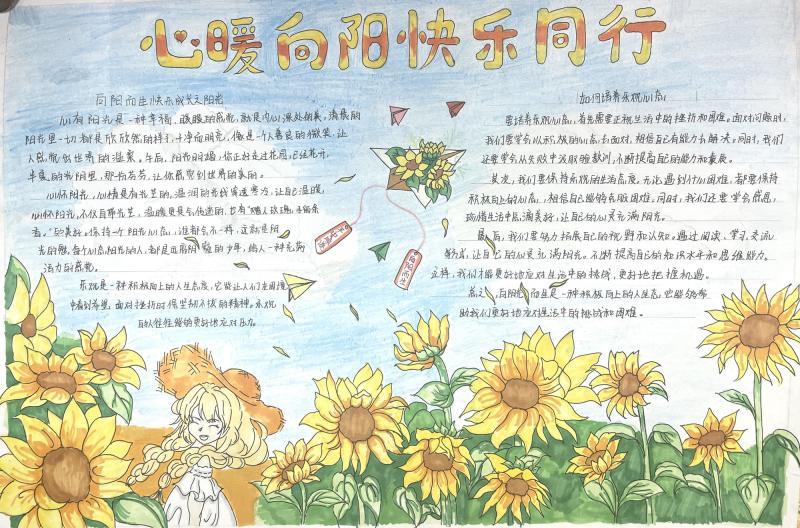 心暖向阳快乐同行
向阳而生快乐成长之阳光
心有阳光是一种幸福、暖暖的感觉,就是内心深处的美,清晨的
阳光里一切都是欣欣然的样子,干净而明亮,像是一个人善良的微笑,让
人感觉到世界的温柔。午后,阳光明媚,你正好走过花园,
心怀阳光,心情是有光芒的,温润的光线穿透寒意,让自己温暖,
保持一个阳光心态,谁都会不一样,这就是阳
光的魅,每个心态阳光的人,都是
活力的感觉。
乐观是一种积极向上的人生态度,它能让人们在困境
中看到希望,面对挫折时保坚韧不拔的精神。乐观
的人往往能够更好地应对压力。
如何培养乐观心态
要培养乐观心态,首先需要正视生活中的挫折和困难。面对问题时,
我们要学会以积极的心态去面对,相信自己有能力去解决。同时,我们
还要学会从失败中汲取经验教训,不断提高自己的能力和素质。
其次,我们要保持乐观的生活态度。无论遇到什么困难,都要保持
积极向上的心态,相信自己能够克服困难。同时,我们还要学会感恩,
珍惜生活中点滴美好,让自己的心灵充满阳光。
最后,我们要努力拓展自己的视野和认知。通过阅读、学习、交流
等方式,让自己的心灵充满阳光。不断提高自己的知识水平和思维能力。
这样,我们才能更好地应对生活中的挑战,更好地把握机遇。
总之,向阳而生是一种积极向上的人生态,它能够帮
助我们更好地应对生活中的挑战和困难。
向阳而生